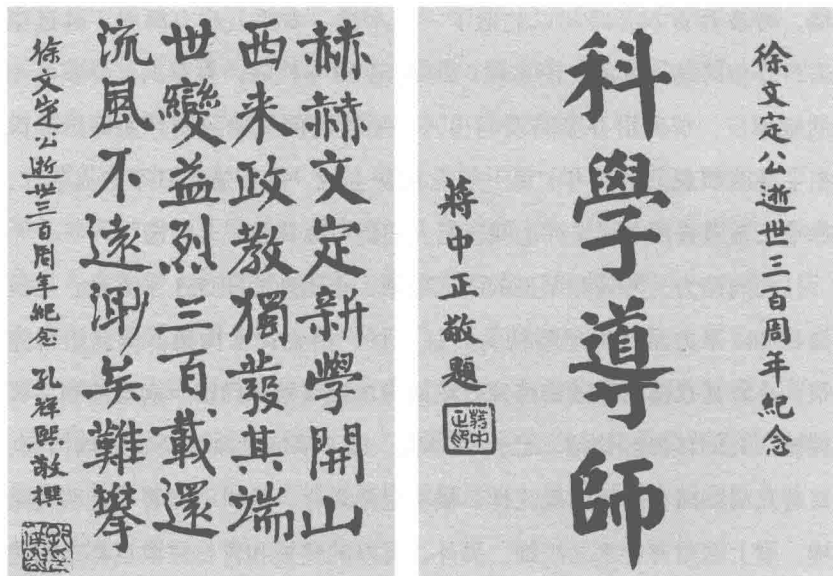 徐文定公逝世三百周年紀念
科學導師
蔣中正敬題
蔣中正印
赫赫文定新學開山
西来政教獨發其端
世變益烈三百載還
流風不遠渺矣難攀
徐文定公逝世三百周年紀念 孔祥熙敬撰